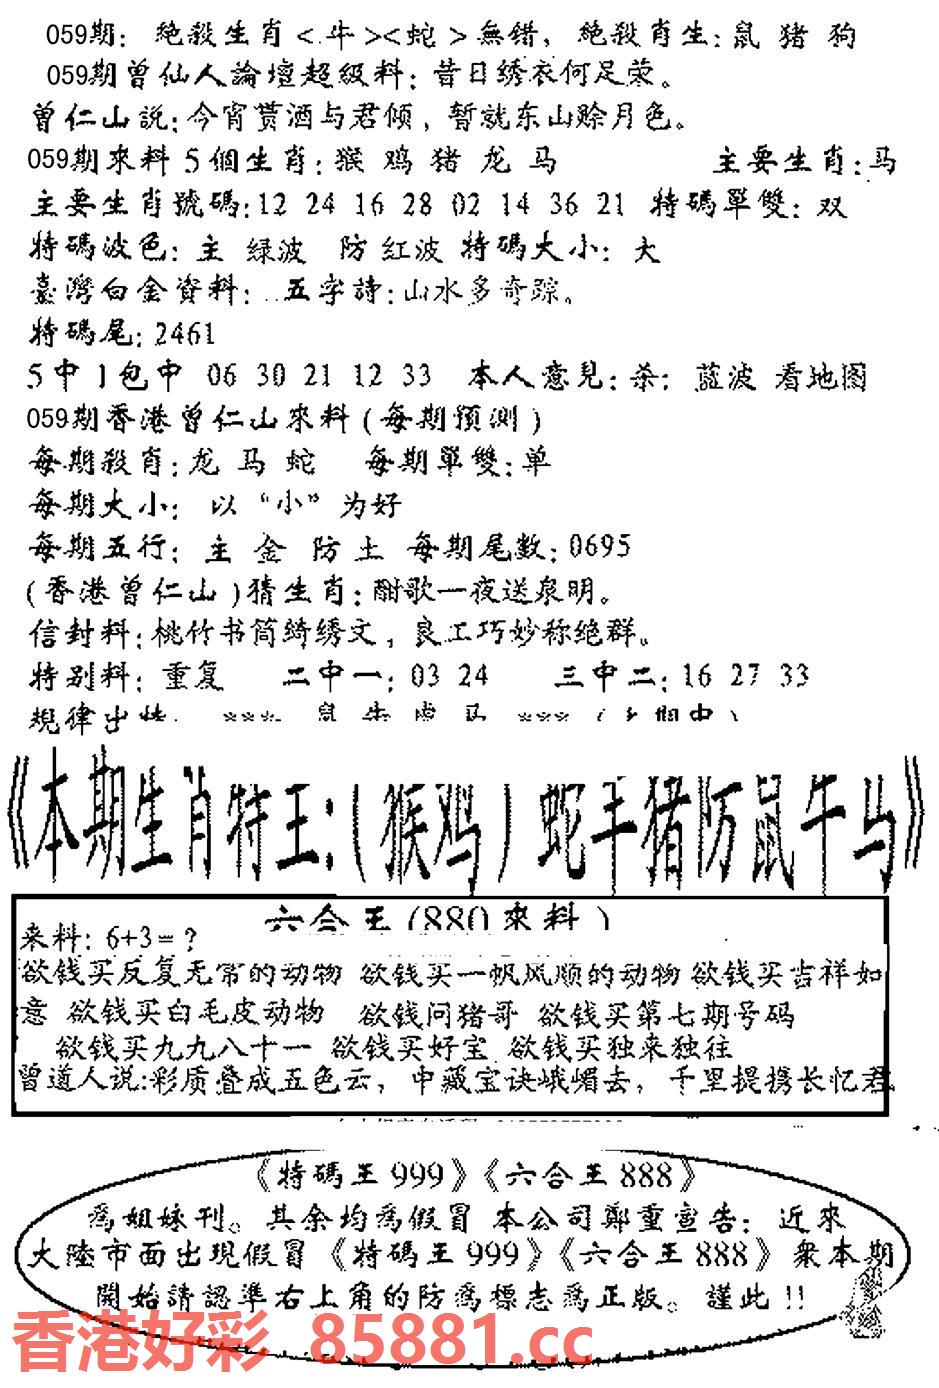 059期: 絶殺生肖<牛><蛇>無错, 絶殺肖生:鼠 猪 狗
059期曾仙人論壇超級料:昔日绣衣何足荣。
曾仁山説:今宵贳酒与君倾, 暫就东山赊月色。
059期來料 5個生肖:猴 鸡 猪 龙 马 主要生肖:马
主要生肖號碼:12 24 16 28 02 14 36 21 特碼單雙: 双
特碼波色: 主 绿波 防 红波 特碼大小: 大
臺灣白金資料: 五字詩:山水多奇踪。
特碼尾:2461
5中1包中 06 30 21 12 33 本人意見:杀: 蓝波 看地图
059期香港曾仁山來料(每期預測)
每期殺肖:龙 马 蛇 每期單雙:单
每期大小: 以“小”为好
每期五行: 主 金 防 土 每期尾数:0695
(香港曾仁山)猜生肖:酣歌一夜送泉明。
信封料:桃竹书筒绮绣文, 良工巧妙称绝群。
特别料: 重复 二中一: 03 24 三中二:16 27 33
規律出特: *** 鼠 牛 虎 马 ***
《本期生肖特王:(猴鸡)蛇羊猪防鼠牛马》
六合王(880來料)
来料: 6+3=?
欲钱买反复无常的动物 欲钱买一帆风顺的动物 欲钱买吉祥如
意 欲钱买白毛皮动物 欲钱问猪哥 欲钱买第七期号码
欲钱买九九八十一 欲钱买好宝 欲钱买独来独往
曾道人说:彩质叠成五色云, 中藏宝诀峨嵋去, 千里提携长忆君
《特碼王999》《六合王888》
爲姐妹刊。其余均爲假冒 本公司鄭重宣告: 近來
大陸市面出現假冒《特碼王999》《六合王888》衆本期
開始請認準右上角的防爲標志爲正版。謹此!!
香港好彩 85881.cc